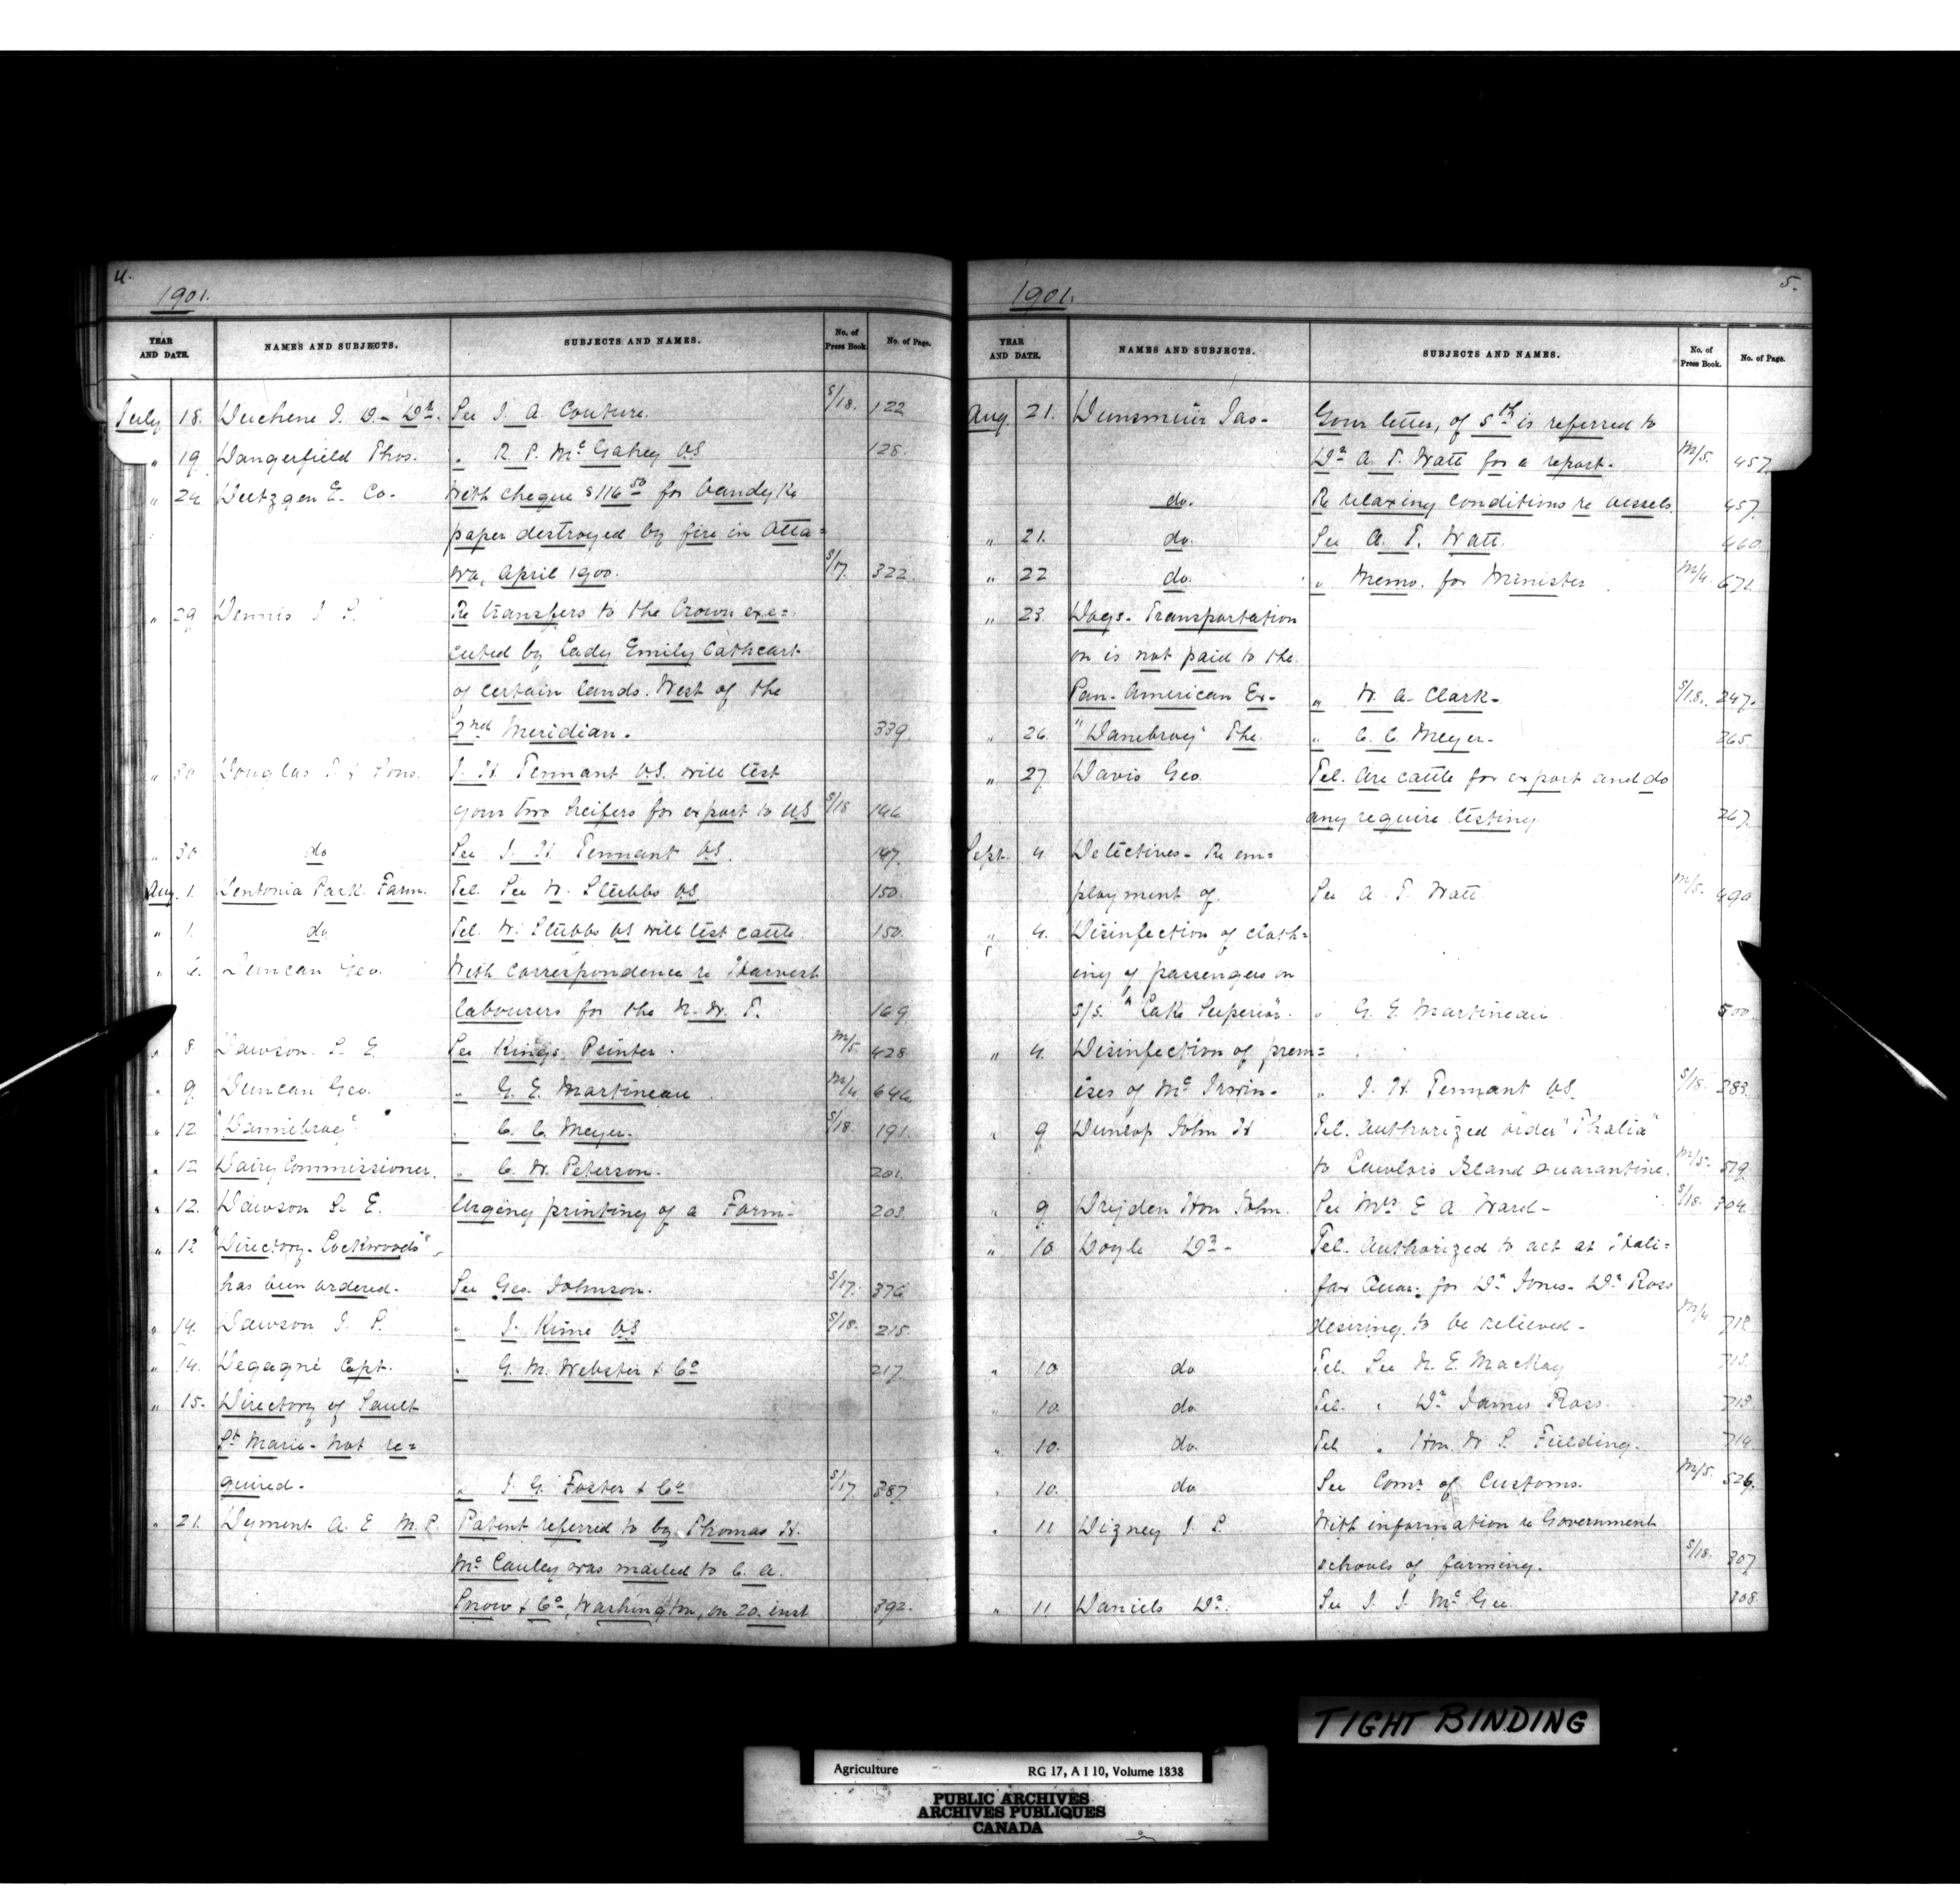 4.
1901.
YEAR AND DATE. NAMES AND SUBJECTS. SUBJECTS AND NAMES. No. of Press Book. No. of Page.
July 18. Duchene J. D. - Dr. See J. A. Couture. S/18. 122
" 19 Dangerfield Thos. " R. P. McGahey VS 128.
" 24 Deitzgen E. Co. With cheque $116.50 for Vandyke
paper destroyed by fire in Otta=
wa, April 1900. S/17. 322.
" 29 Dennis J S. Re transfers to the Crown exe=
cuted by Lady Emily Cathcart
of certain lands. West of the
2nd Meridian. 339
" 30 Douglas J. & Sons. J. H. Tennant VS. will test
your two heifers for export to US S/18 146
" 30 do See J. H. Tennant VS. 147.
Aug. 1. Dentonia Park Farm. Tel. See W. Stubbs VS. 150.
" 1. do Tel. W. Stubbs VS will test cattle. 150.
" 6. Duncan Geo. With correspondence re Harvest
labourers for the N. W. T. 169
" 8 Dawson S. E. See Kings Printer. M/5 428
" 9 Duncan Geo. " G. E. Martineau M/4 646
" 12. "Dannebrog" " C. C. Meyer. S/18. 191.
" 12 Dairy Commissioner. " C. W. Peterson. 201.
" 12. Dawson S. E. Urging printing of a Form- 203.
" 12 "Directory - Lockwoods",
has been ordered. See Geo. Johnson. S/17. 376
" 14. Dawson J. P. " J. Kime VS S/18. 215.
" 14. Degagné Capt. " G. M. Webster & Co 217
" 15. Directory of Sault
St Marie - not re=
quired. " J. G. Foster & Co S/17 387
" 21. Dyment A. E M. P. Patent referred to by Thomas H.
McCauley was mailed to C. A.
Snow & Co, Washington, on 20. inst 392.
5.
1901.
YEAR AND DATE. NAMES AND SUBJECTS. SUBJECTS AND NAMES. No. of Press Book. No. of Page.
Aug. 21. Dunsmuir Jas - Your letter, of 5th is referred to
Dr A. T. Watt for a report. M/5. 457
do. Re relaxing conditions re vessels. 457.
" 21. do. See A. T. Watt. 460.
" 22 do. " Memo. for Minister M/4. 671.
" 23. Dogs - Transportation
on is not paid to the
Pan-American Ex- " W. A. Clark - S/18. 247.
" 26. "Danebrog" The " C. C. Meyer - 265.
" 27 Davis Geo. Tel. Are cattle for export and do
any require testing 267.
Sept. 4 Detectives - Re em=
ployment of See A. T. Watt M/5. 499
" 4. Disinfection of cloth=
ing of passengers on
S/S. "Lake Superior" " G. E. Martineau 500.
" 4. Disinfection of prem=
ises of Mc Irwin - " J. H. Tennant VS. S/18. 283.
" 9 Dunlop John H Tel. Authorized order "Thalia"
to Lawlors Island quarantine. M/5. 519.
" 9 Dryden Hon John. See Mrs E A. Ward - S/18. 304.
" 10 Doyle Dr - Tel. Authorized to act at Hali=
fax Quar. for Dr Jones - Dr Ross
desiring to be relieved - M/4. 712.
" 10 do Tel. See N. E. MacKay 713.
" 10. do Tel. " Dr James Ross. 713.
" 10. do. Tel " Hon. W S. Fielding. 714.
" 10. do See Comr of Customs. M/5. 526.
" 11 Digney J. P. With information re Government
schools of farming. S/18. 307.
" 11 Daniels Dr. See J. J. McGee 308.
TIGHT BINDING
Agriculture RG 17, A I 10, Volume 1838
PUBLIC ARCHIVES
ARCHIVES PUBLIQUES
CANADA